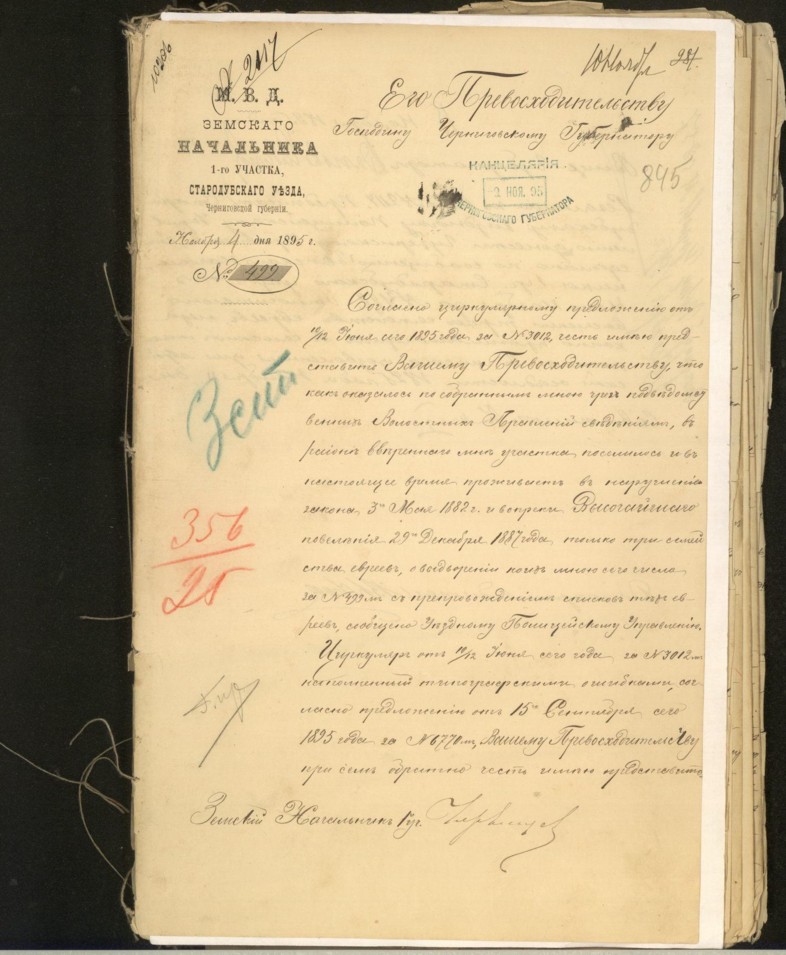 2117
10 Ноября
281.
М. В. Д.
ЗЕМСКАГО
НАЧАЛЬНИКА
1-го УЧАСТКА,
СТАРОДУБСКАГО УѢЗДА,
Черниговской губерніи.
Ноября 4 дня 1895 г.
№ 499
Его Превосходительству
Господину Черниговскому Губернатору
КАНЦЕЛЯРІЯ
2 НОЯ. 95
ЧЕРНИГОВСКАГО ГУБЕРНАТОРА
845
Согласно циркулярному предложенію отъ
10/12 Іюня сего 1895 года за № 3012, честь имѣю пред-
ставить Вашему Превосходительству, что
какъ оказалось по собраннымъ мною чрезъ подвѣдомст
венныхъ Волостныхъ Правленій свѣдѣніямъ, въ
районѣ ввѣреннаго мнѣ участка поселились и въ
настоящее время проживаютъ въ нарушеніе
закона 3го Мая 1882 г. и вопреки Высочайшаго
повелѣнія 29го Декабря 1887 года только три семей
ства евреевъ, о выдвореніи коихъ мною сего числа
за № 499мъ съ препровожденіемъ списковъ тѣхъ ев-
реевъ, сообщено Уѣздному Полицейскому Управленію.
Циркуляръ отъ 10/12 Іюня сего года за № 3012мъ
наполненный типографскими ошибками, сог-
ласно предложенію отъ 15го Сентября сего
1895 года за № 6770мъ, Вашему Превосходительству
при семъ обратно честь имѣю представить
356
25
Земскій Начальникъ 1 уч.